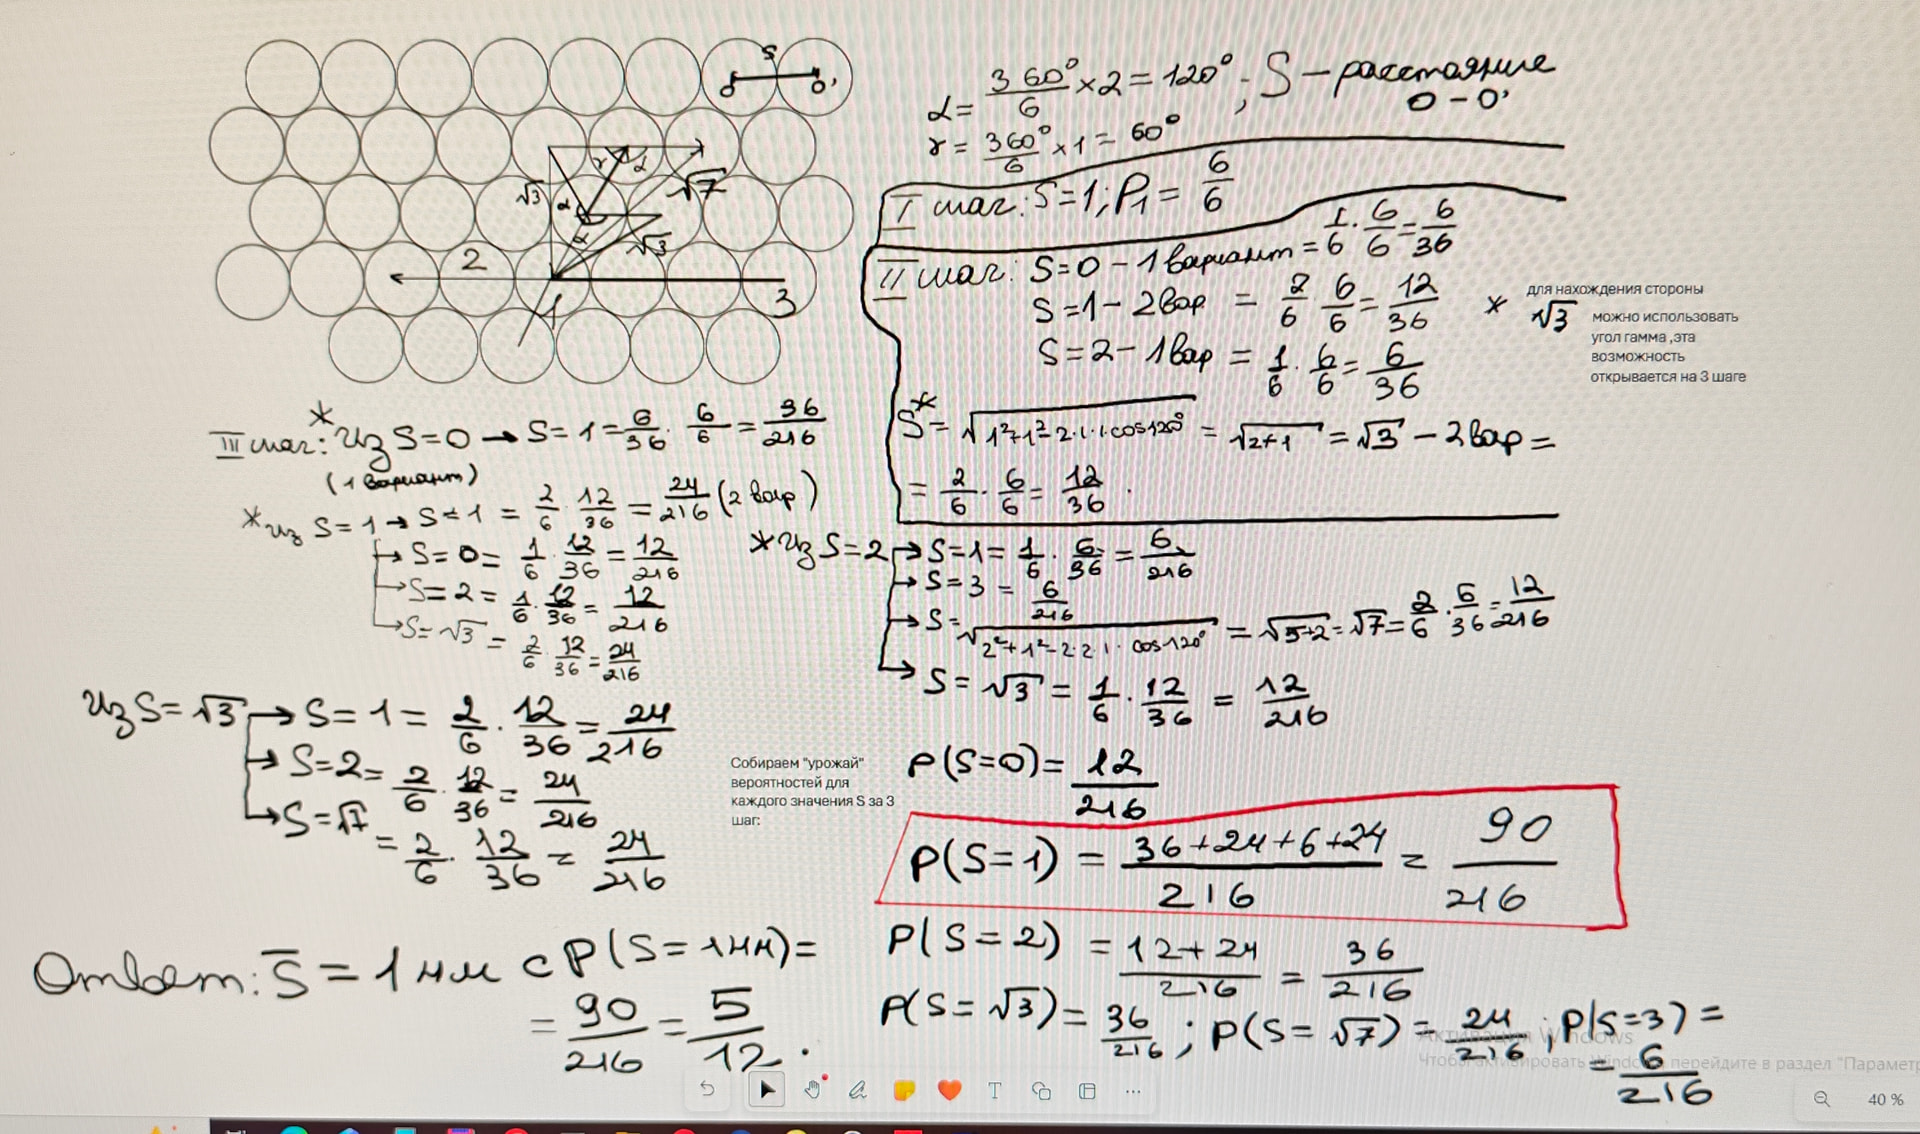 S
O
O'
√3
γ
α
√7
α
α
√3
2
1
3
α = 360°/6 ×2 = 120° ; S – расстояние
O – O'
γ = 360°/6 ×1 = 60°
I шаг: S=1; P₁ = 6/6
II шаг: S=0 – 1 вариант = 1/6 · 6/6 = 6/36
S=1 – 2 вар = 2/6 · 6/6 = 12/36
S=2 – 1 вар = 1/6 · 6/6 = 6/36
S* = √(1²+1²-2·1·1·cos120°) = √(2+1) = √3 – 2 вар =
= 2/6 · 6/6 = 12/36 .
* для нахождения стороны
√3 можно использовать
угол гамма ,эта
возможность
открывается на 3 шаге
III шаг: * из S=0 → S=1 = 6/36 · 6/6 = 36/216
(1 вариант)
* из S=1 → S=1 = 2/6 · 12/36 = 24/216 (2 вар)
→ S=0 = 1/6 · 12/36 = 12/216
→ S=2 = 1/6 · 12/36 = 12/216
→ S=√3 = 2/6 · 12/36 = 24/216
* из S=2 → S=1 = 1/6 · 6/36 = 6/216
→ S=3 = 6/216
→ S= √(2²+1²-2·2·1·cos120°) = √(5+2) = √7 = 2/6 · 6/36 = 12/216
→ S = √3 = 1/6 · 12/36 = 12/216
из S=√3 → S=1 = 2/6 · 12/36 = 24/216
→ S=2 = 2/6 · 12/36 = 24/216
→ S=√7 = 2/6 · 12/36 = 24/216
Собираем "урожай"
вероятностей для
каждого значения S за 3
шаг:
P(S=0) = 12/216
P(S=1) = (36+24+6+24)/216 = 90/216
P(S=2) = (12+24)/216 = 36/216
P(S=√3) = 36/216 ; P(S=√7) = 24/216 ; P(S=3) =
= 6/216
Ответ: S̄ = 1 нм с P(S=1нм) =
= 90/216 = 5/12 .
Активация Windows
Чтобы активировать Windows, перейдите в раздел "Парамет
T
40 %